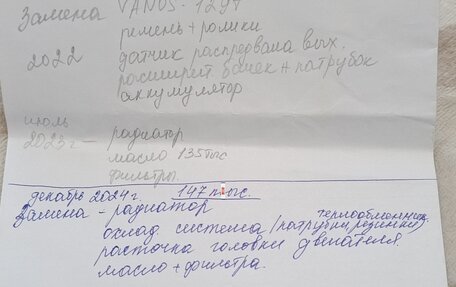 Замена VANOS - 129т
ремень + ролики
2022 датчик распредвала вых.
расширит бачек + патрубок
аккумулятор
июль
2023г — радиатор
масло 135тыс
фильтры.
декабрь 2024г. 147 тыс.
Замена - радиатор
термообменник
охлад система (патрубки, резинки)
расточка головки двигателя
масло + фильтра.